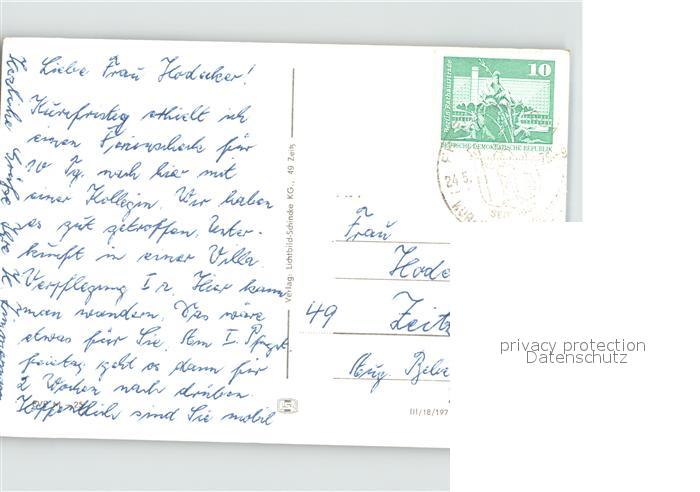 Liebe Frau Hodecker!
Kurzfristig erhielt ich
einen Ferienscheck für
10 Tg. nach hier mit
einer Kollegin. Wir haben
es gut getroffen. Unter-
kunft in einer Villa.
Verpflegung I a. Hier kann
man wandern. Das wäre
etwas für Sie. Am I. Pfingst
feiertag geht es dann für
2 Wochen nach drüben.
Hoffentlich sind Sie mobil
Herzliche Grüße Ihre
Verlag: Lichtbild-Schincke KG., 49 Zeitz
10
Berlin, Rathausstraße
DEUTSCHE DEMOKRATISCHE REPUBLIK
24.5.
Frau
Hode
49 Zeitz
Aug. Bebe
III/18/197
privacy protection
Datenschutz